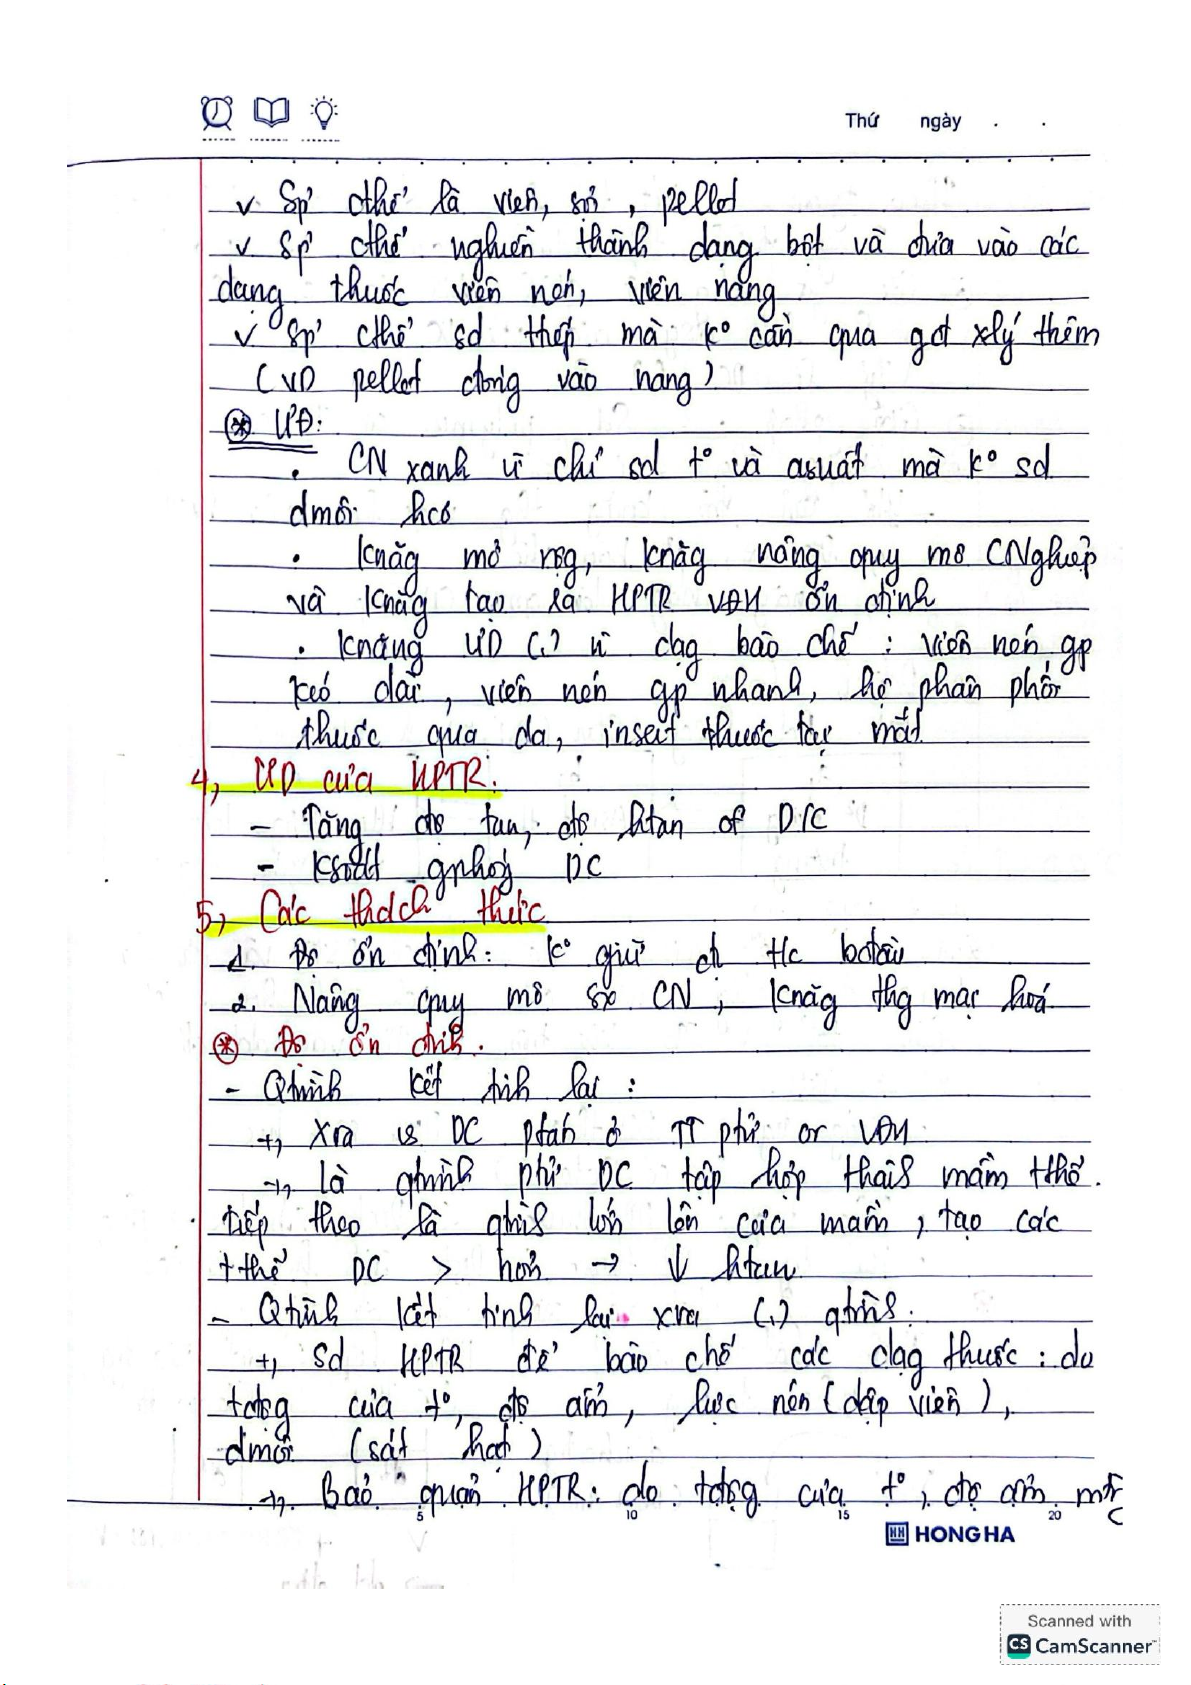 Thứ ngày . .
v Sp' cthể là viên, sợi, pellet
v Sp' cthể nghiền thành dạng bột và đưa vào các
dạng thuốc viên nén, viên nang
v Sp' cthể sd thếp mà k° cần qua gđ xlý thêm
(VD pellet đóng vào nang)
⊛ ƯĐ:
• CN xanh vì chỉ sd t° và asuất mà k° sd
dmôi hcơ
• Knăg mở rộg, knăg nâng quy mô CNghiệp
và knăg tạo ra HPTR VĐH ổn định
• Knăng ƯD (.) n̄ dạg bào chế: viên nén gp
kéo dài, viên nén gp nhanh, hệ phân phối
thuốc qua da, insert thuốc tại mắt
4, ƯD của HPTR:
- Tăng độ tan, độ htan of D/C
- Ksoát gphóg DC
5, Các thách thức
1. Độ ổn định: k° giữ đ tc bđầu
2. Nâng quy mô sx CN; knăg thg mại hoá
⊛ Độ ổn định.
- Qtrình kết tinh lại:
+, Xra vs DC ptán ở TT ptử or VĐH
+, là qtrình ptử DC tập hợp thàih mầm tthể.
tiếp theo là qtrìh lớn lên của mầm, tạo các
tthể DC > hơn → ↓ htan
- Qtrình kết tinh lại xra (.) qtrìh:
+, Sd HPTR để bào chế các dạg thuốc: do
tđộg của t°, độ ẩm, lực nén (dập viên),
dmôi (sát hạt)
+, Bảo quản HPTR: do tđộg của t°, độ ẩm mtr
5 10 15 20
HH HONG HA
Scanned with
CS CamScanner